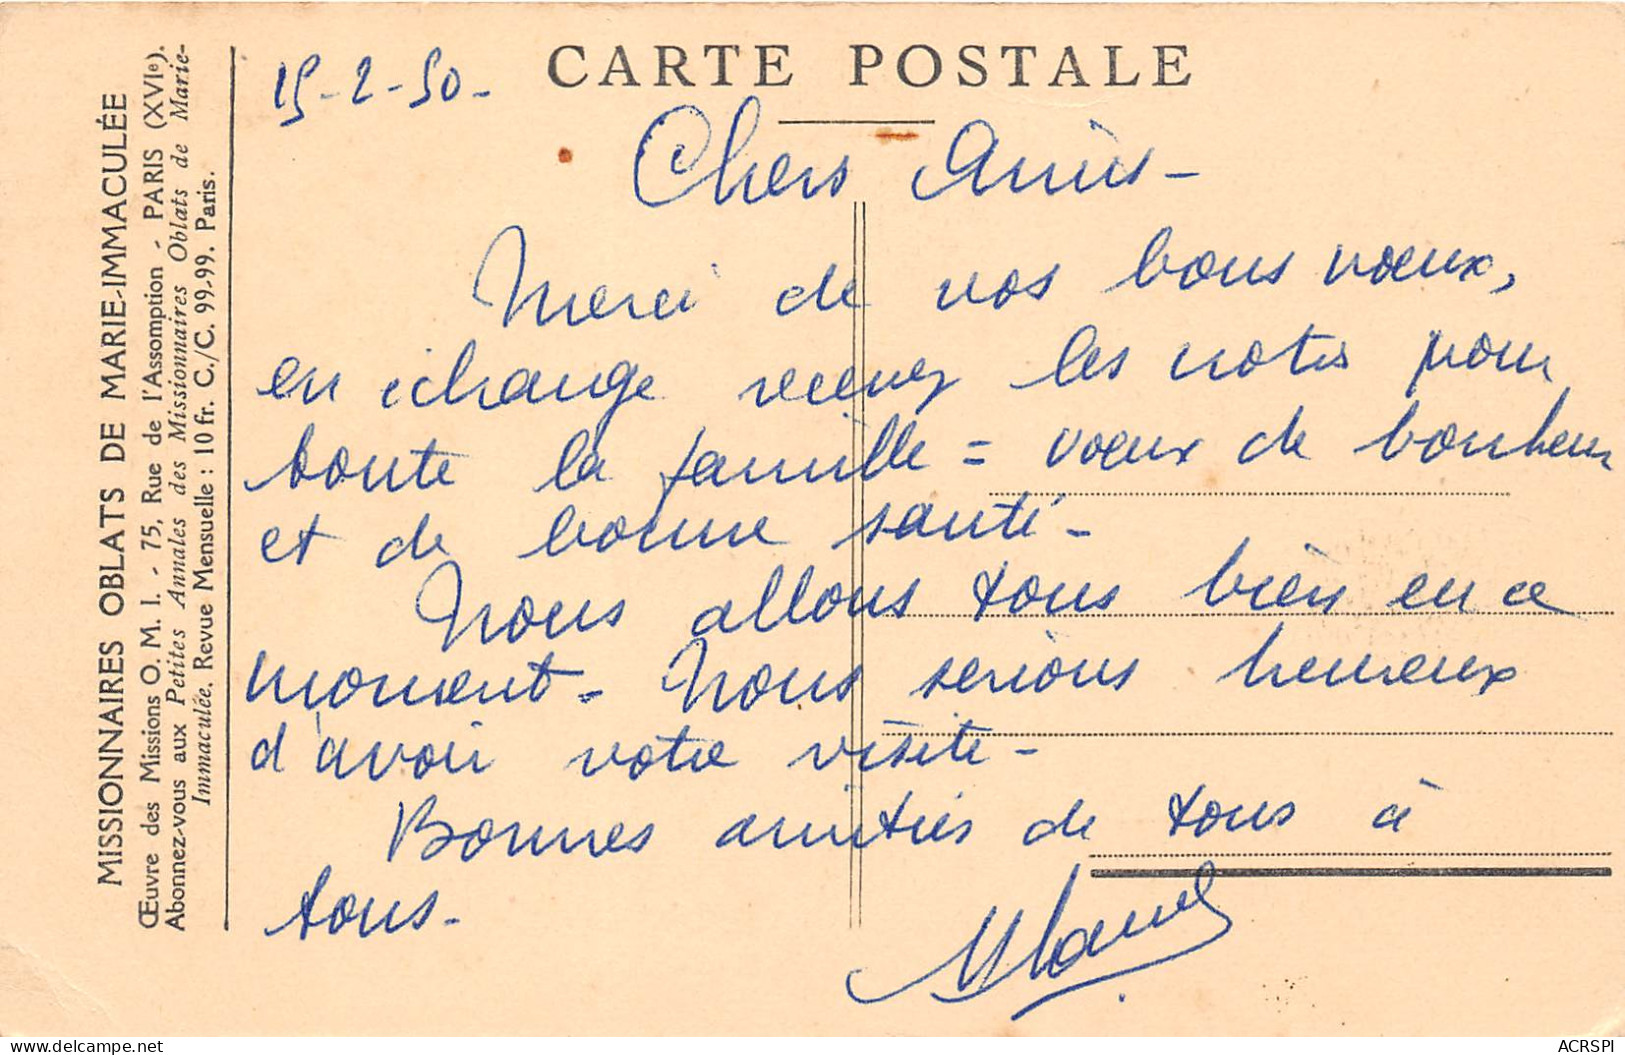 CARTE POSTALE
15-2-50-
Chers Amis-
Merci de vos bons vœux,
en échange recevez les notres pour
toute la famille = vœux de bonheur
et de bonne santé-
Nous allons tous bien en ce
moment- Nous serions heureux
d'avoir votre visite-
Bonnes amitiés de tous à
tous-
MISSIONNAIRES OBLATS DE MARIE-IMMACULÉE
Œuvre des Missions O. M. I. - 75, Rue de l'Assomption - PARIS (XVIe).
Abonnez-vous aux Petites Annales des Missionnaires Oblats de Marie-
Immaculée. Revue Mensuelle : 10 fr. C./C. 99-99. Paris.
delcampe.net
ACRSPI